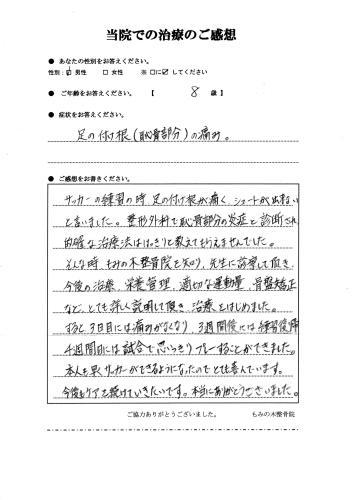 当院での治療のご感想
● あなたの性別をお答えください。
性別：☑ 男性 □ 女性 ※ □に☑ してください
● ご年齢をお答えください。 【 8 歳】
● 症状をお答えください。
足の付け根(恥骨部分)の痛み。
● ご感想をお書きください。
サッカーの練習の時、足の付け根が痛く、シュートが出来ない
と言いました。整形外科で恥骨部分の炎症と診断され
的確な治療法ははっきりと教えてもらえませんでした。
そんな時、もみの木整骨院を知り、先生に診察して頂き、
今後の治療、栄養管理、適切な運動量、骨盤矯正
など、とても詳しく説明して頂き、治療をはじめました。
すると、3日目には痛みがなくなり、3週間後には練習復帰
4週間目には試合で思いっきりプレーすることができました。
本人も早くサッカーができるようになったのでとても喜んでいます。
今後もケアを続けていきたいです。本当にありがとうございました。
ご協力ありがとうございました。 もみの木整骨院